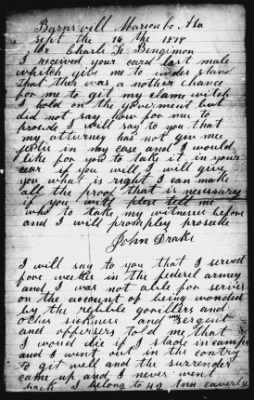 Barnsvell Marion Co Ala
Sept the 16 the 1878
Mr Charls H Bengimon
I received your card last male
whitch give me to understand
that ther was a nother chance
for me to git my claim witch
I hold on the goverment but
did not say how for me to
prosede I will say to you that
my attorney has not give me
in my case and I would
like for you to take it in your
if you will I will give
you what is right I can make
all the proof that is necessary
if you will pleas tell me
who to take my witneses before
and I will promptley prosede
John Drake
I will say to you that I served
in the federel army
and I was not able for serves
on the account of being wonded
by the rebble gorillers and
other sickness and sergent
and oppersers told me that
I would die if I stade in camps
and I went out in the contry
to git well and the surrender
came up and I never went
back I belong to